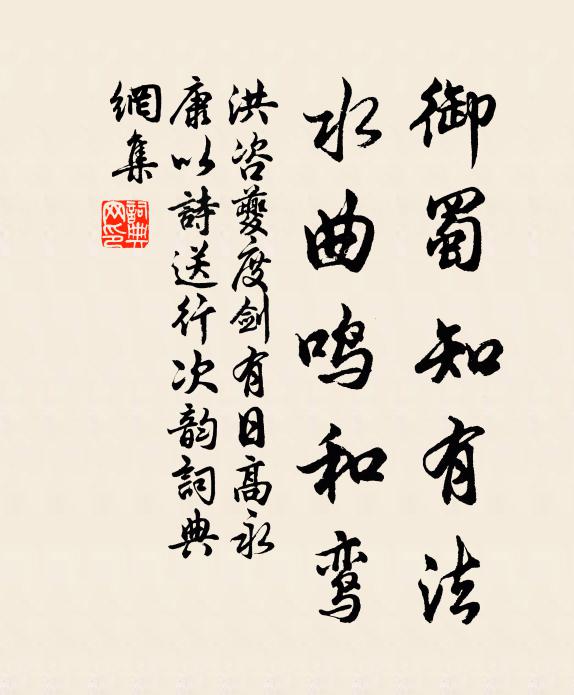 御蜀知有法
水曲鸣和鸾
洪咨夔度劍有日高永
康以詩送行次韵詞典
網集
詞典
网印